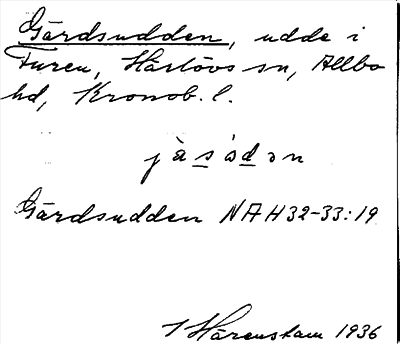 Gärdsudden, udde i
Furen, Härlövs sn, Allbo
hd, Kronob. l.
jà s ȯ́d ə n
Gärdsudden NAH32-33:19
Härenstam 1936